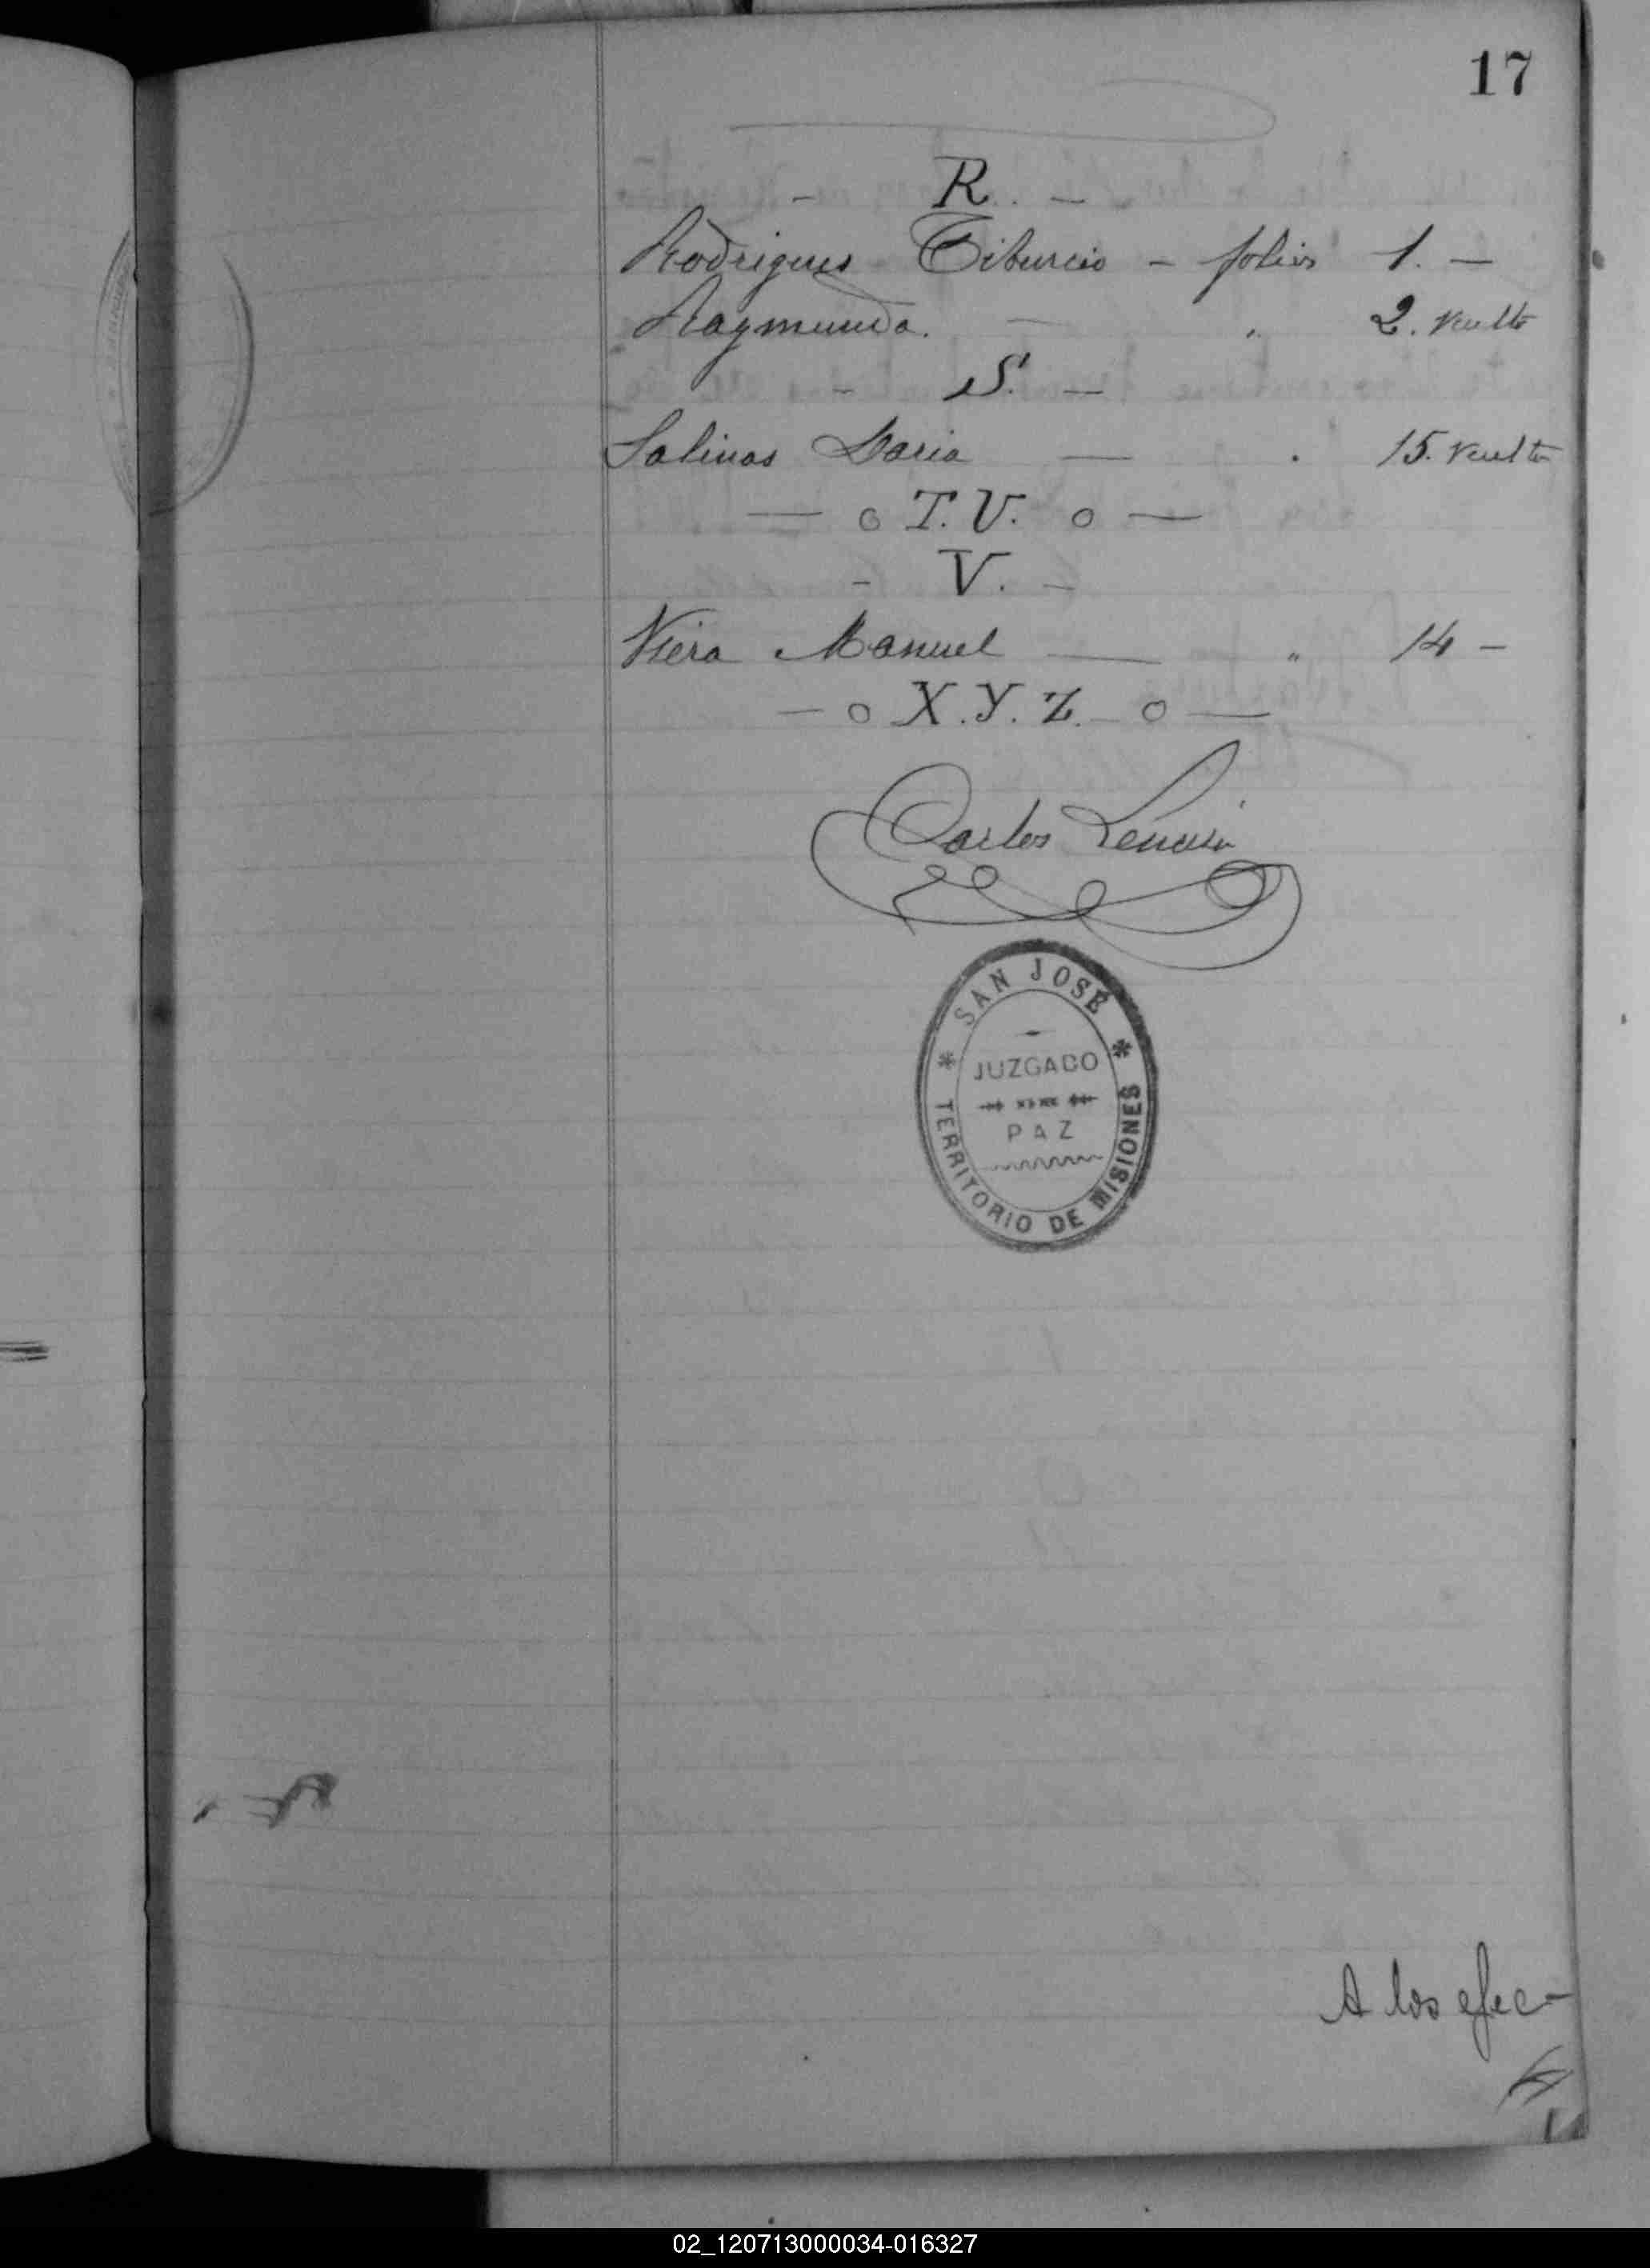 17
- R. -
Rodrigues Tiburcio - folios 1. -
Raymunda. - " 2. vuelto
- S. -
Salinas Maria — . 15. vuelto
— o T. U. o —
- V. -
Viera Manuel — " 14 -
— o X. Y. Z. — o —
Carlos
SAN JOSÉ
JUZGADO
PAZ
TERRITORIO DE MISIONES
A los efec-
02_120713000034-016327